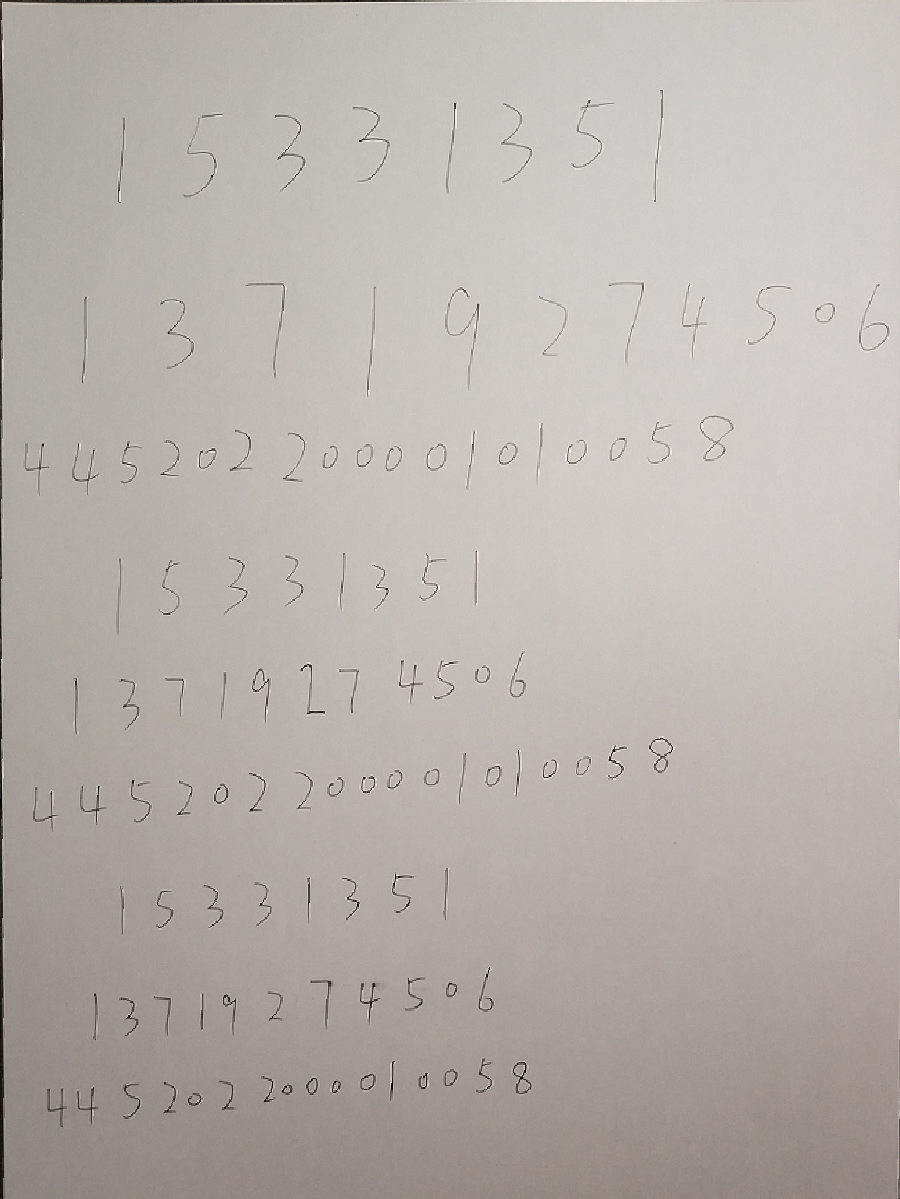 15331351
13719274506
445202200001010058
15331351
13719274506
445202200001010058
15331351
13719274506
4452022000010058